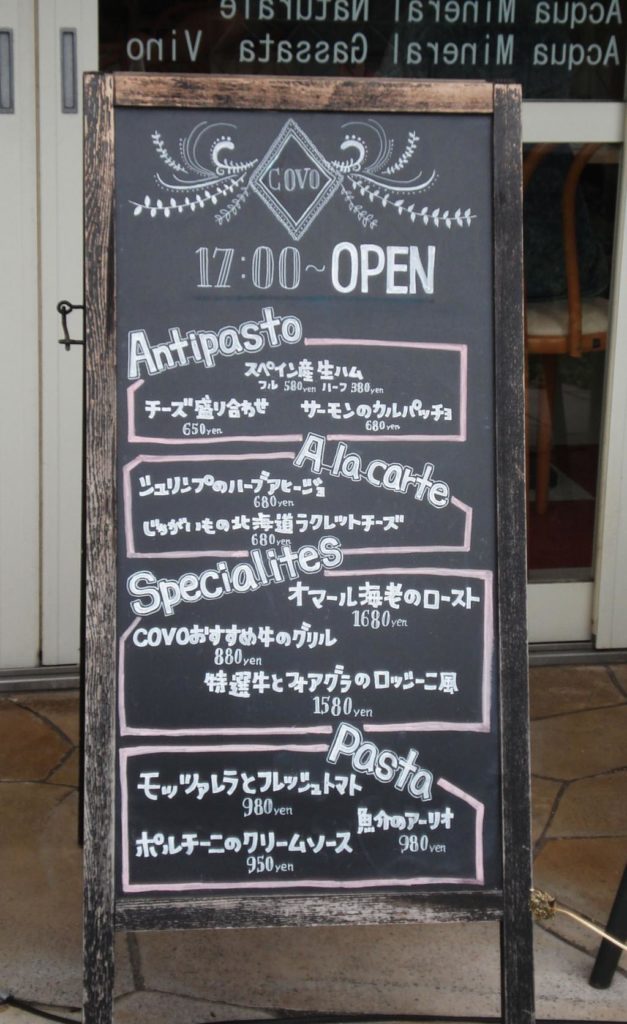 Acqua Mineral Naturale
Acqua Mineral Gassata Vino
COVO
17:00~OPEN
Antipasto
スペイン産生ハム
フル 580yen ハーフ 380yen
チーズ盛り合わせ サーモンのカルパッチョ
650yen 680yen
A la carte
シュリンプのハーブアヒージョ
680yen
じゃがいもの北海道ラクレットチーズ
680yen
Specialites
オマール海老のロースト
1680yen
COVOおすすめ牛のグリル
880yen
特選牛とフォアグラのロッシーニ風
1580yen
Pasta
モッツァレラとフレッシュトマト
980yen
魚介のアーリオ
980yen
ポルチーニのクリームソース
950yen